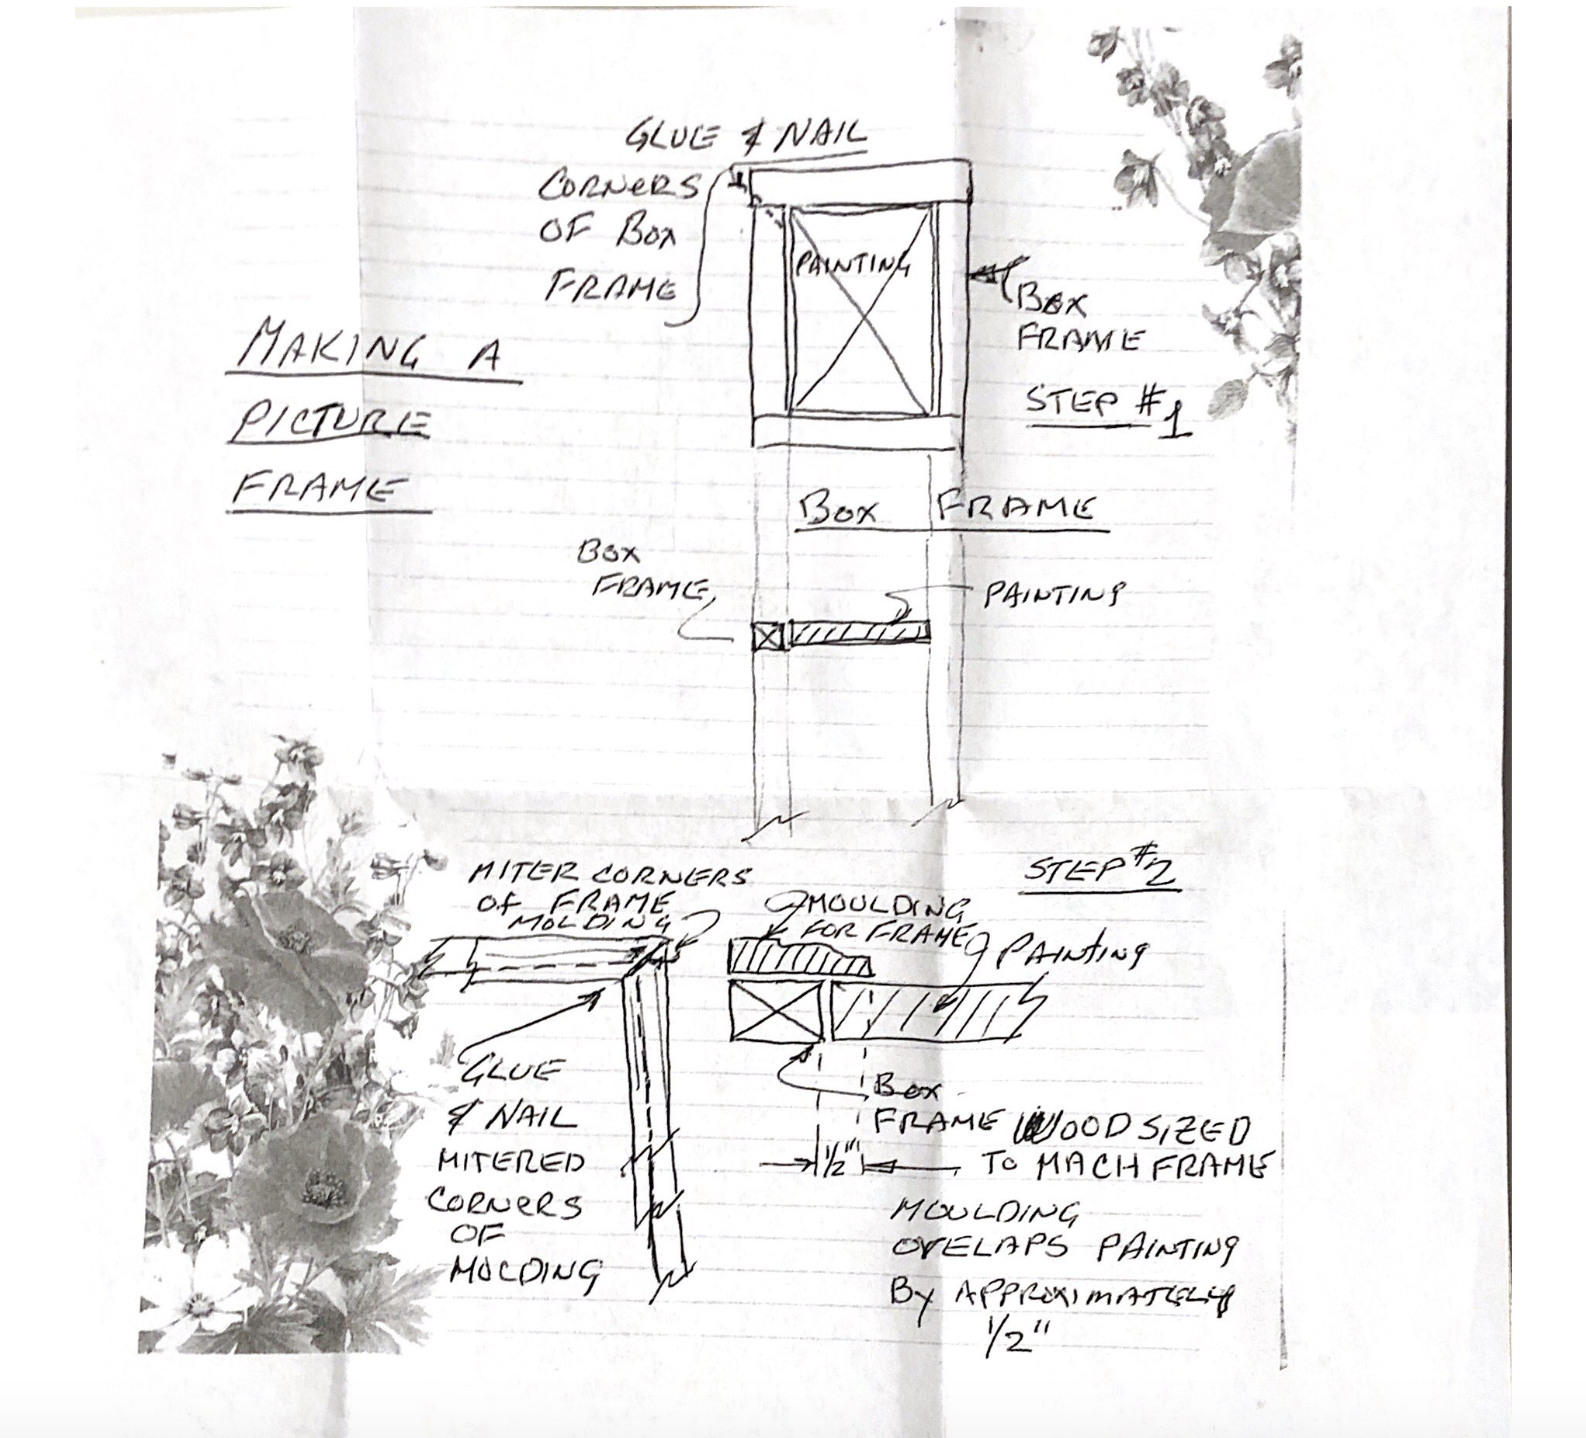 GLUE & NAIL
CORNERS
OF BOX
FRAME
MAKING A
PICTURE
FRAME
PAINTING
BOX
FRAME
STEP #1
BOX FRAME
BOX
FRAME
PAINTING
STEP #2
MITER CORNERS
OF FRAME
MOLDING
MOULDING
FOR FRAME
PAINTING
GLUE
& NAIL
MITERED
CORNERS
OF
MOLDING
BOX
FRAME WOOD SIZED
TO MACH FRAME
1/2"
MOULDING
OVELAPS PAINTING
BY APPROXIMATELY
1/2"